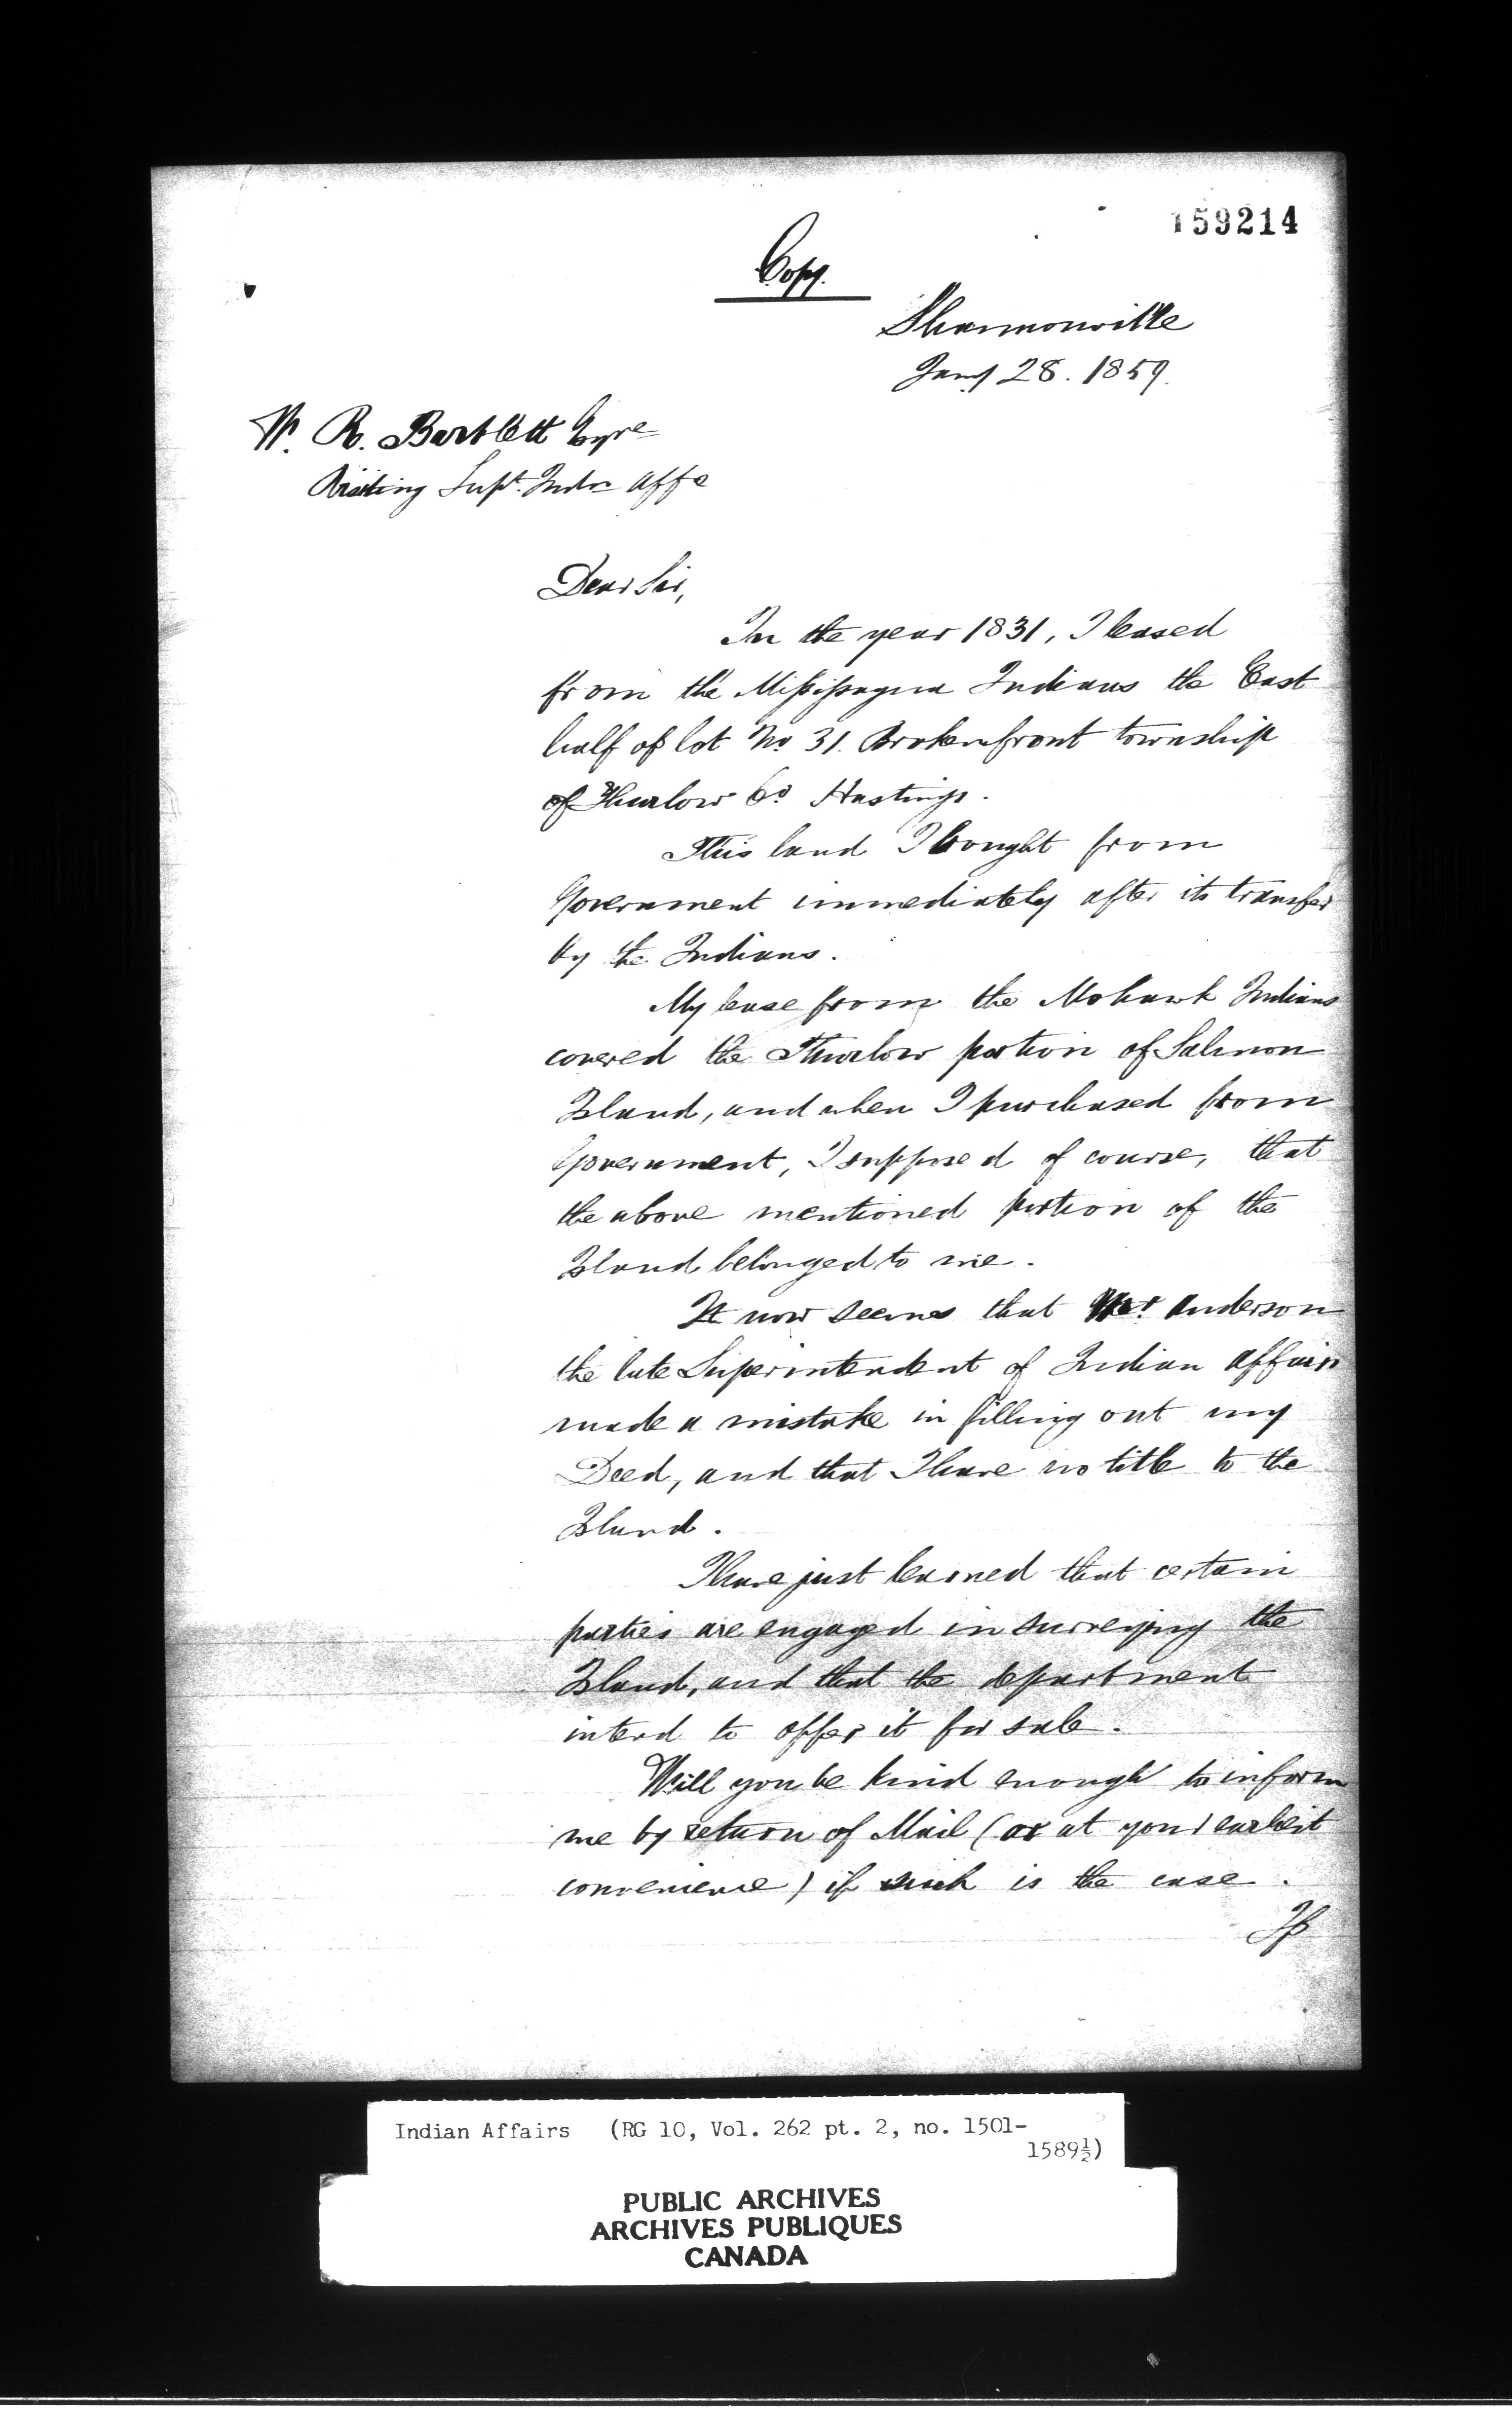 159214
Copy.
Shannonville
Jany 28. 1859.
W. R. Bartlett Esqre
Visiting Supt. Indn Affs
Dear Sir,
In the year 1831, I leased
from the Missisagua Indians the East
half of lot No. 31. Broken front township
of Thurlow Co Hastings.
This land I bought from
Government immediately after its transfer
by the Indians.
My lease from the Mohawk Indians
covered the Thurlow portion of Salmon
Island, and when I purchased from
Government, I supposed of course, that
the above mentioned portion of the
Island belonged to me.
It now seems that Mr. Anderson
the late Superintendent of Indian Affairs
made a mistake in filling out my
Deed, and that I have no title to the
Island.
I have just learned that certain
parties are engaged in surveying the
Island, and that the department
intend to offer it for sale.
Will you be kind enough to inform
me by return of Mail (or at your earliest
convenience) if such is the case.
If
Indian Affairs (RG 10, Vol. 262 pt. 2, no. 1501-
1589½)
PUBLIC ARCHIVES
ARCHIVES PUBLIQUES
CANADA